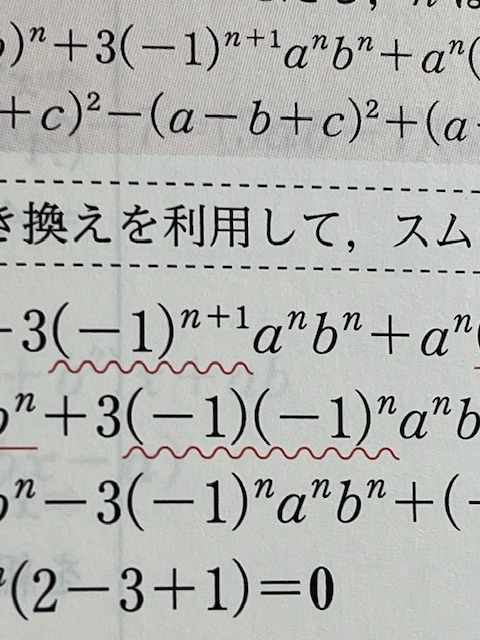 )ⁿ+3(−1)ⁿ⁺¹aⁿbⁿ+aⁿ(
+c)²−(a−b+c)²+(a
き換えを利用して，スム
3(−1)ⁿ⁺¹aⁿbⁿ+aⁿ
bⁿ+3(−1)(−1)ⁿaⁿb
bⁿ−3(−1)ⁿaⁿbⁿ+(−
(2−3+1)=0